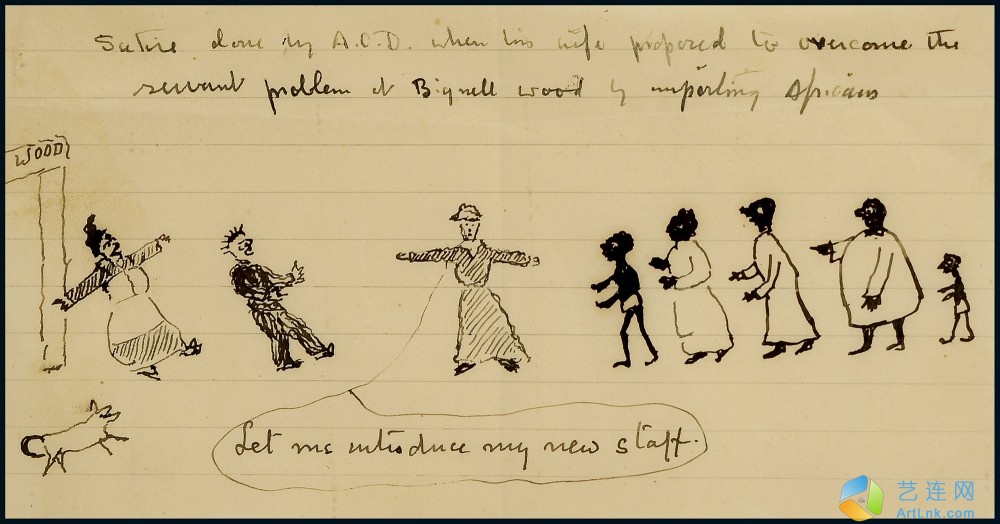 Satire done by A.C.D. when his wife proposed to overcome the
servant problem at Bignell wood by importing Africans
WOOD
Let me introduce my new staff.
艺连网
ArtLnk.com